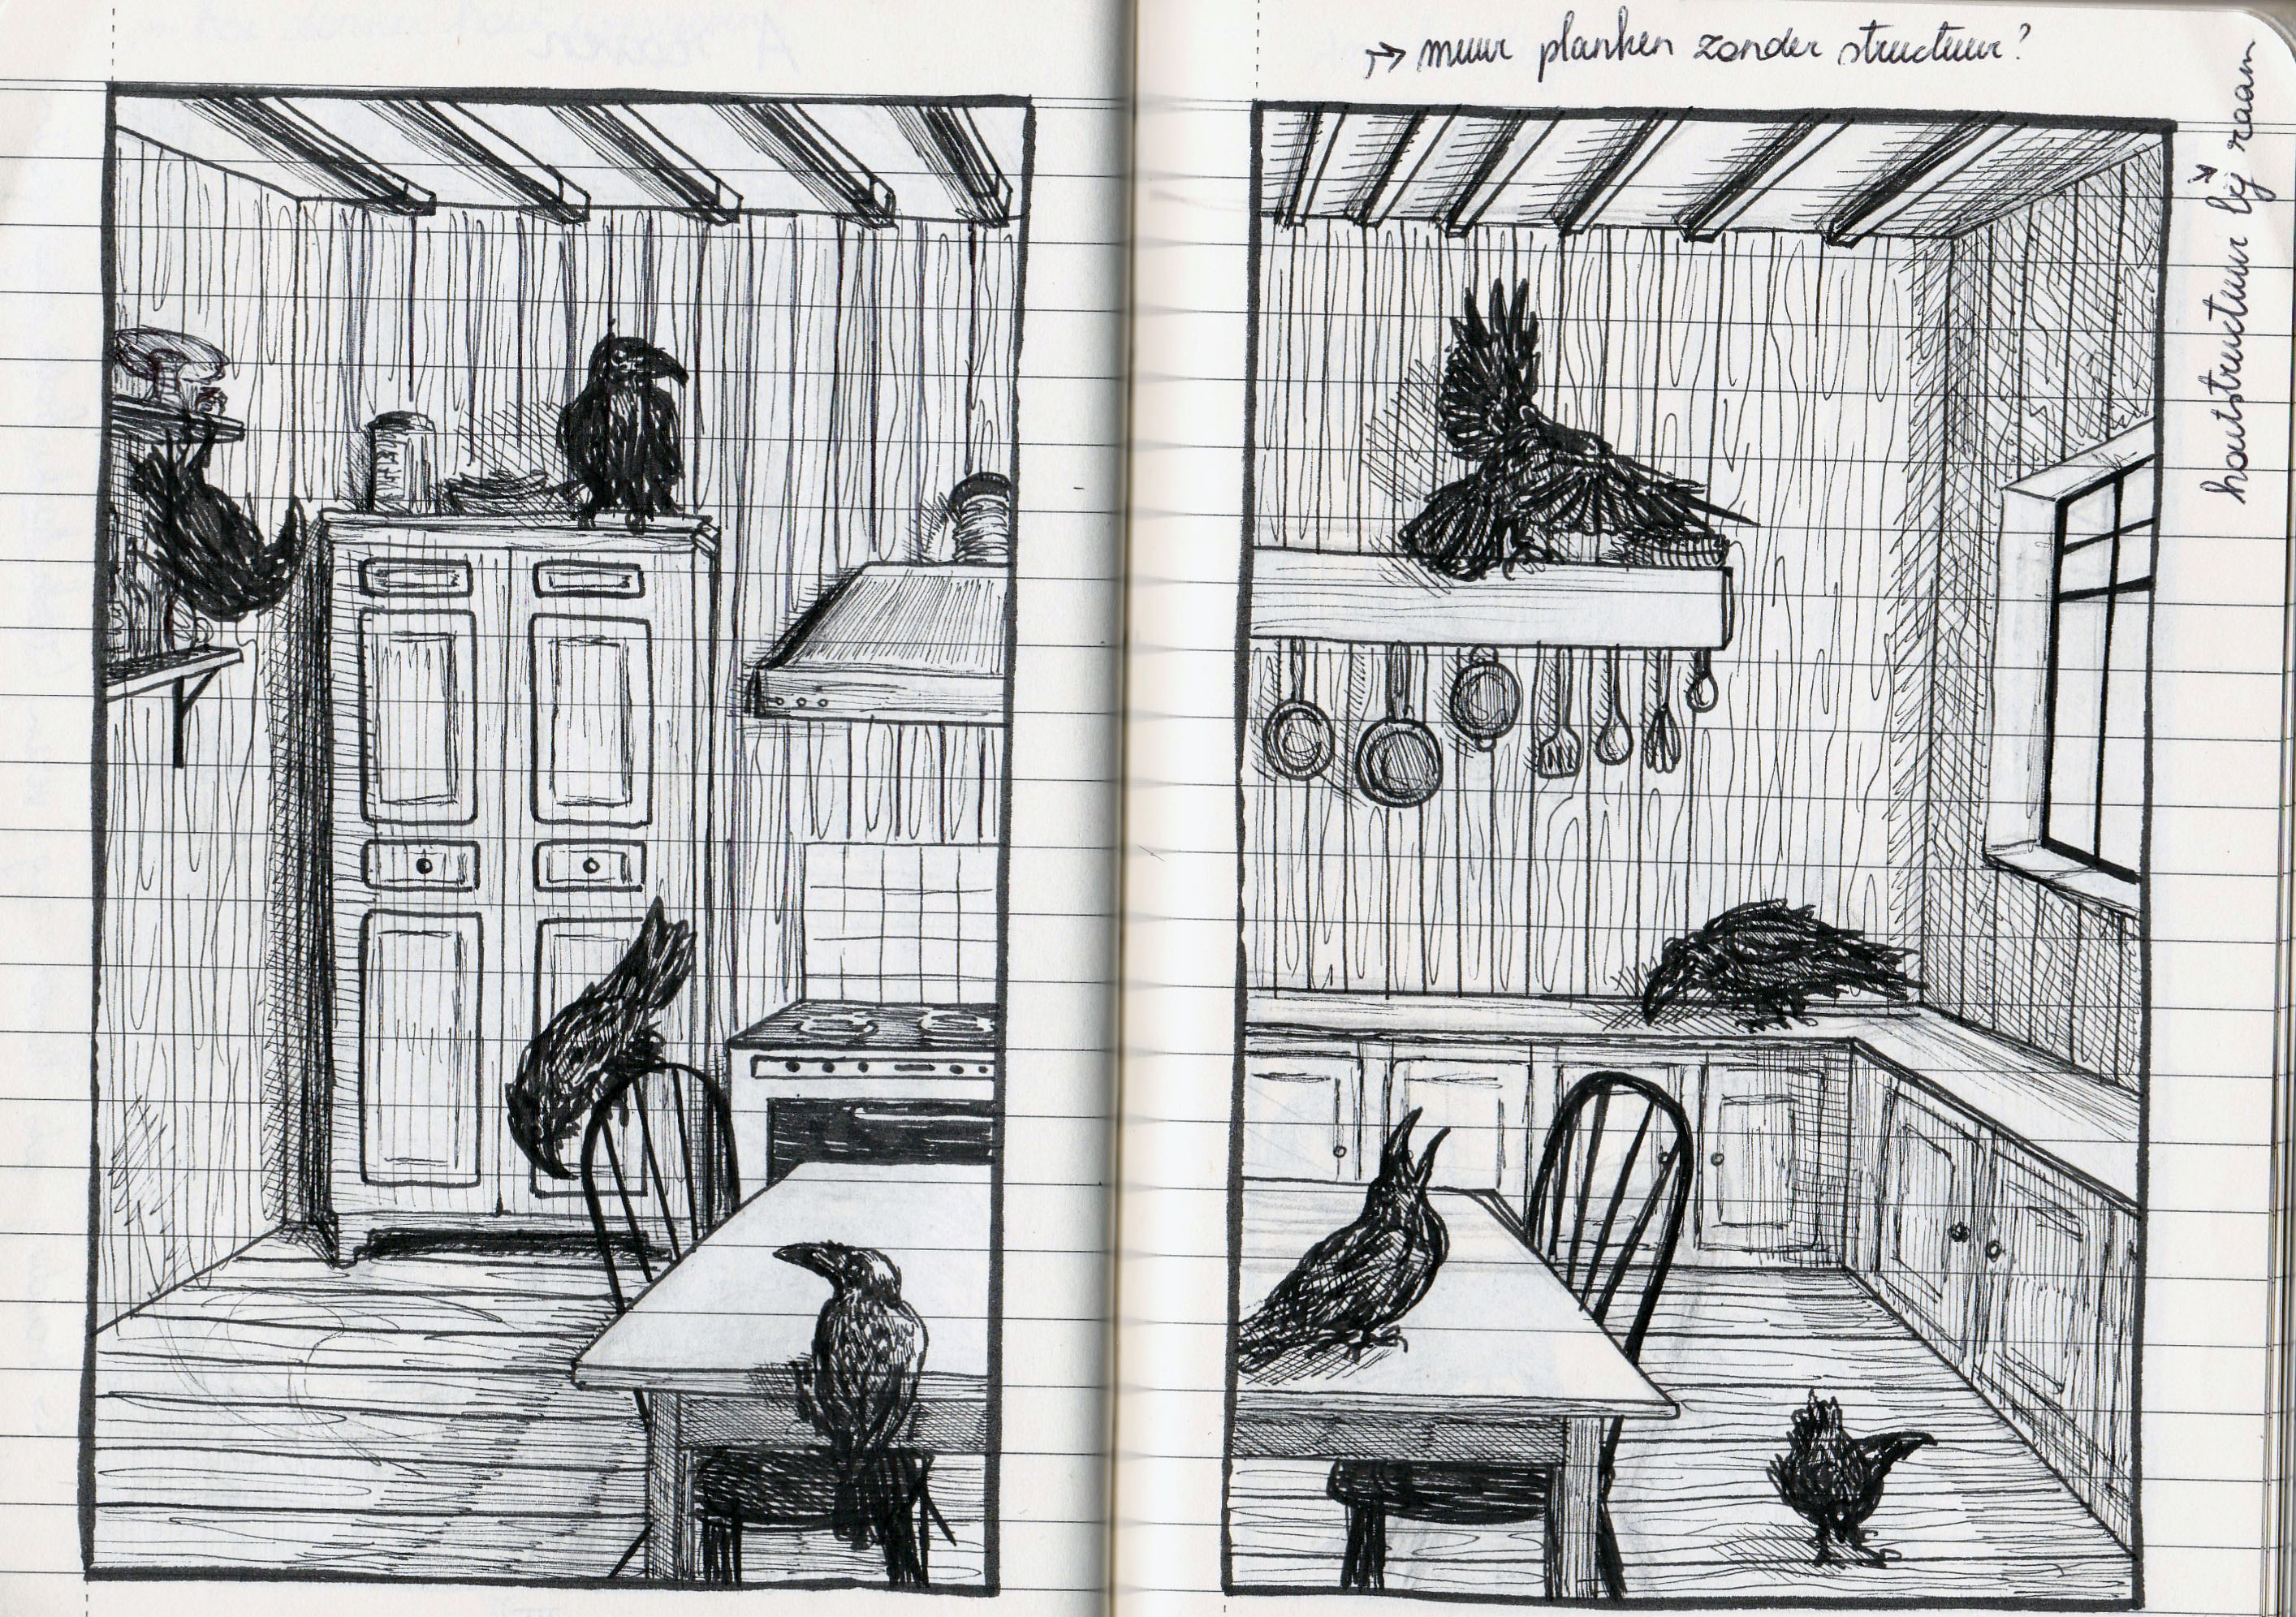 → muur planken zonder structuur?
houtstructuur bij raam